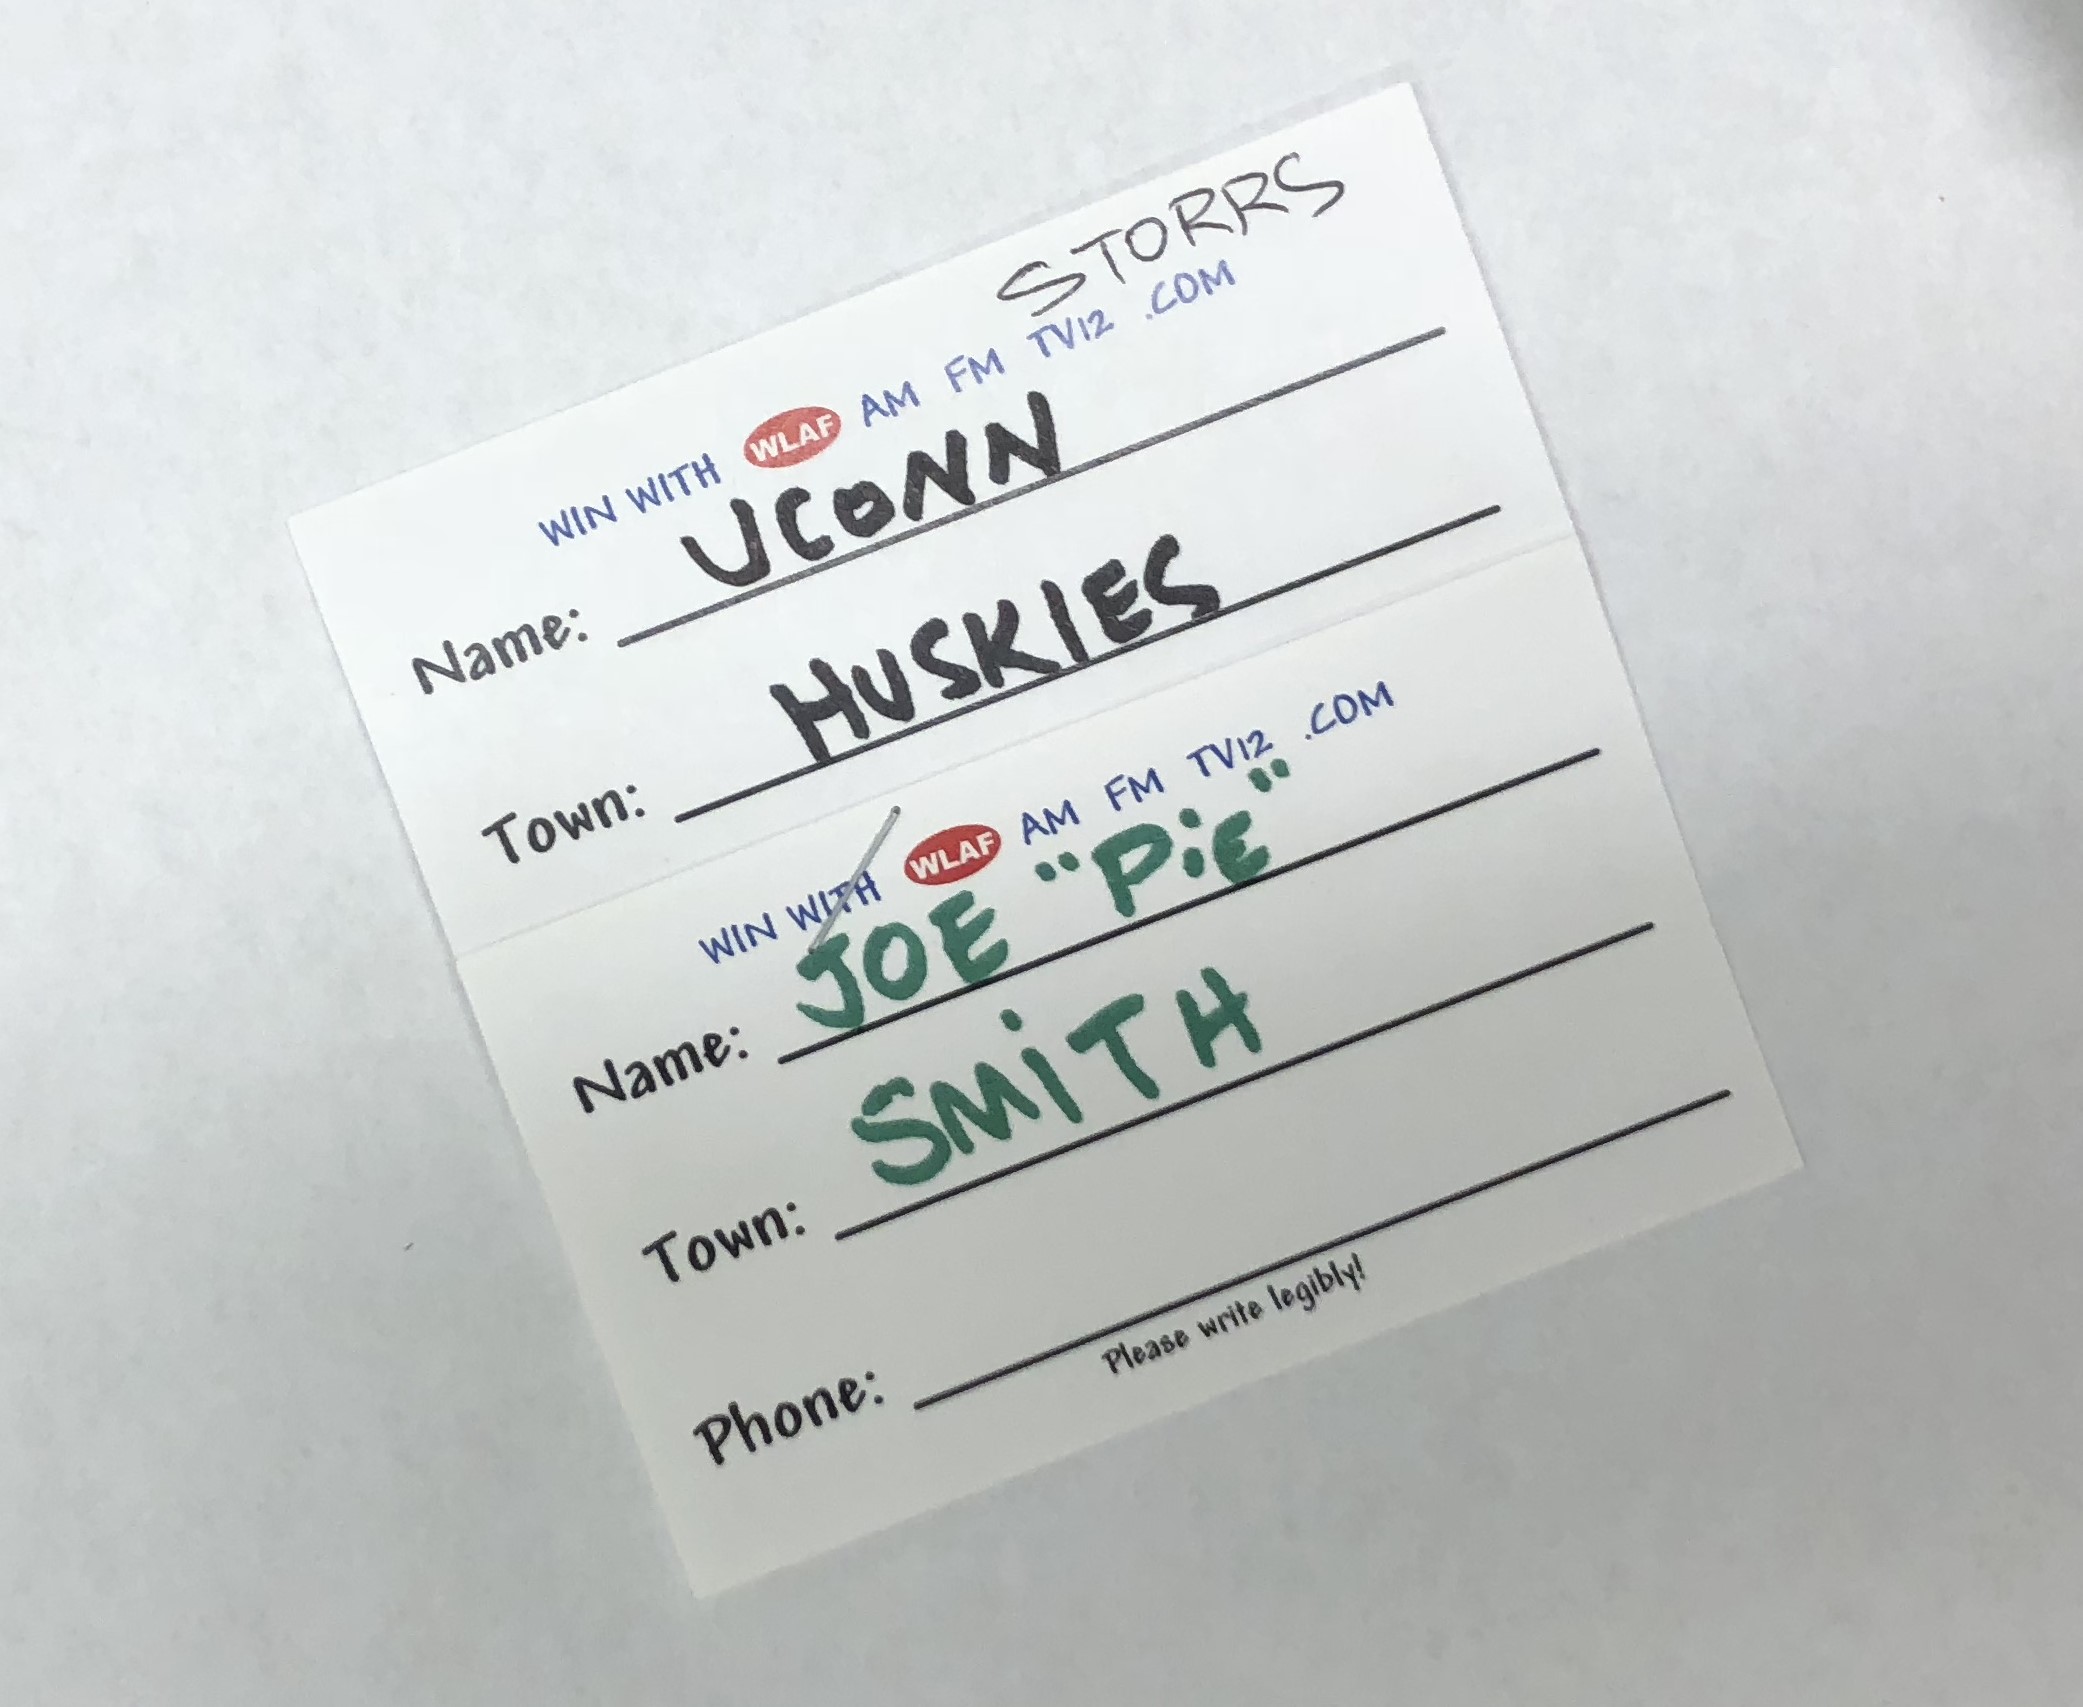 STORRS
WIN WITH WLAF AM FM TV12 .COM
Name: UCONN
Town: HUSKIES
WIN WITH WLAF AM FM TV12 .COM
Name: JOE "PiE"
Town: SMiTH
Phone:
Please write legibly!